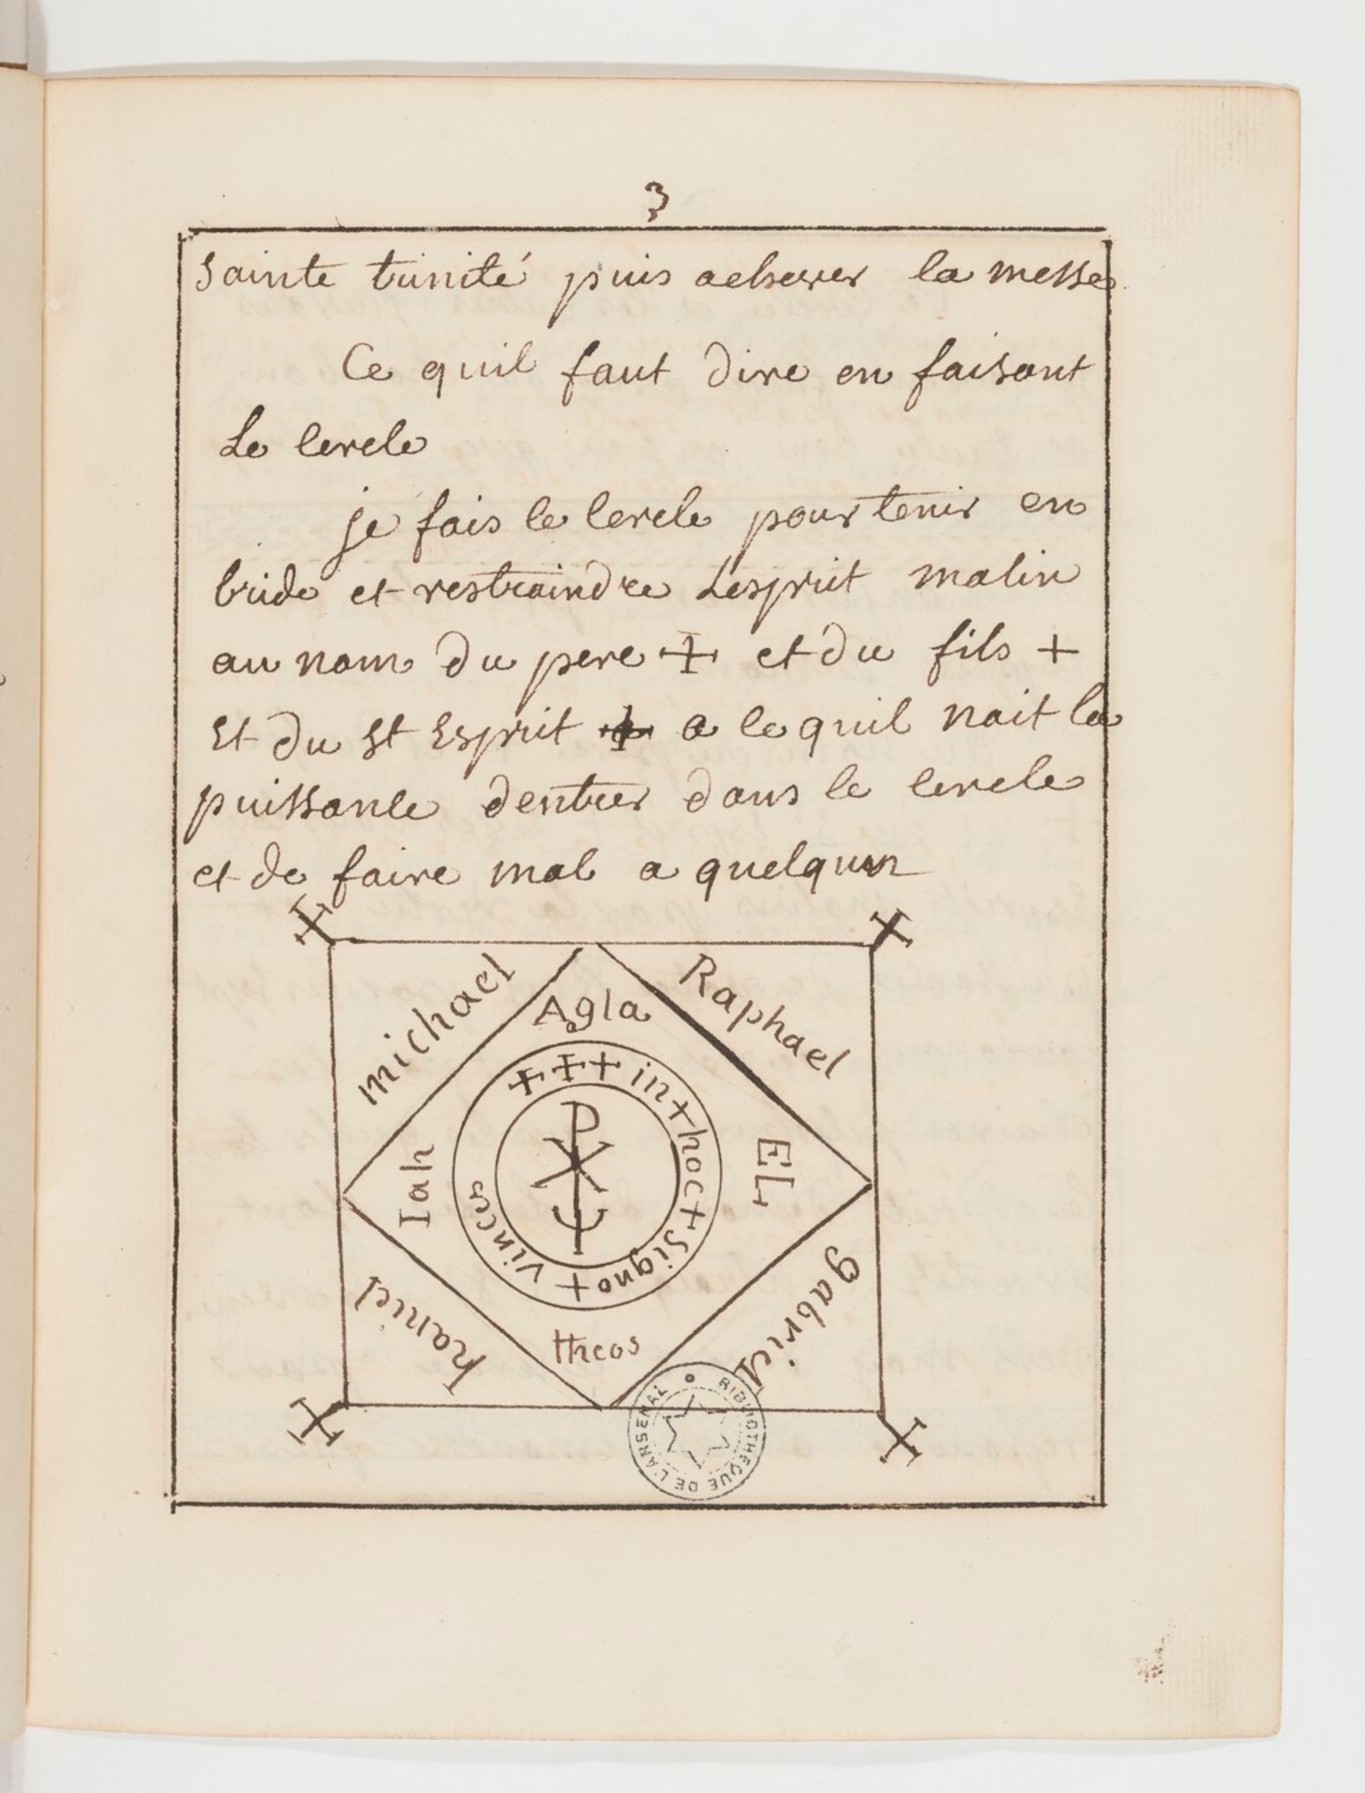 3
Sainte trinité puis achever la messe
Ce quil faut dire en faisant
Le cercle
je fais le cercle pour tenir en
bride et restraindre Lesprit malin
au nom du pere + et du fils +
Et du St Esprit + a le quil nait la
puissance dentrer dans le cercle
et de faire mal a quelquun
michael
Raphael
Agla
+++ in + hoc + Signo + vinces
Iah
EL
haniel
gabriel
theos
BIBLIOTHEQUE DE L'ARSENAL